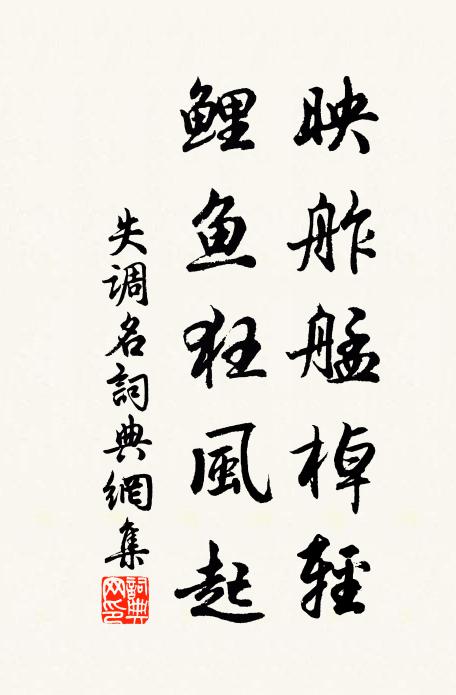 映舴艋棹轻
鲤鱼狂風起
失调名詞典網集
詞典网印